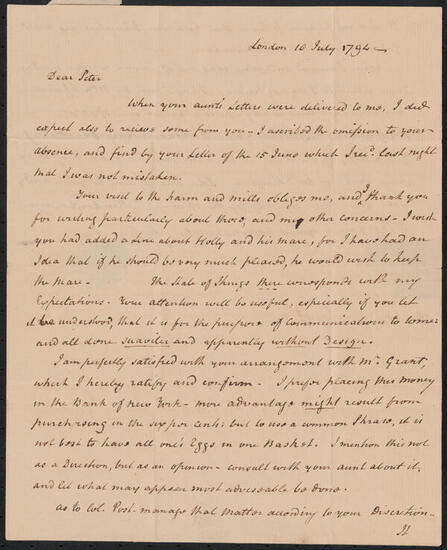 London 10 July 1794 —
Dear Peter
When your aunt's Letters were delivered to me, I did
expect also to recieve some from you – I ascribed the omission to your
absence, and find by your Letter of the 15 June which I rec.d last night
that I was not mistaken.
Your visit to the Farm and mills obliges me, and I thank you
for writing particularly about those, and my other concerns – I wish
you had added a Line about Holly and his mare, for I have had an
Idea that if he should be very much pleased, he would wish to keep
the Mare – The State of Things there corresponds with my
Expectations. Your attention will be useful, especially if you let
it be understood, that it is for the purpose of Communications to me
and all done suaviter and apparently without Design.
I am perfectly satisfied with your arrangement with Mr. Grant,
which I hereby ratify and confirm – I prefer placing this money
in the Bank of New York – more advantage might result from
purchasing in the six per cents but to use a common Phrase, it is
not best to have all one's Eggs in one Basket. I mention this not
as a Direction, but as an opinion – consult with your aunt about it,
and let what may appear most adviseable be done.
as to Col. Post – manage that matter according to your Discretion –